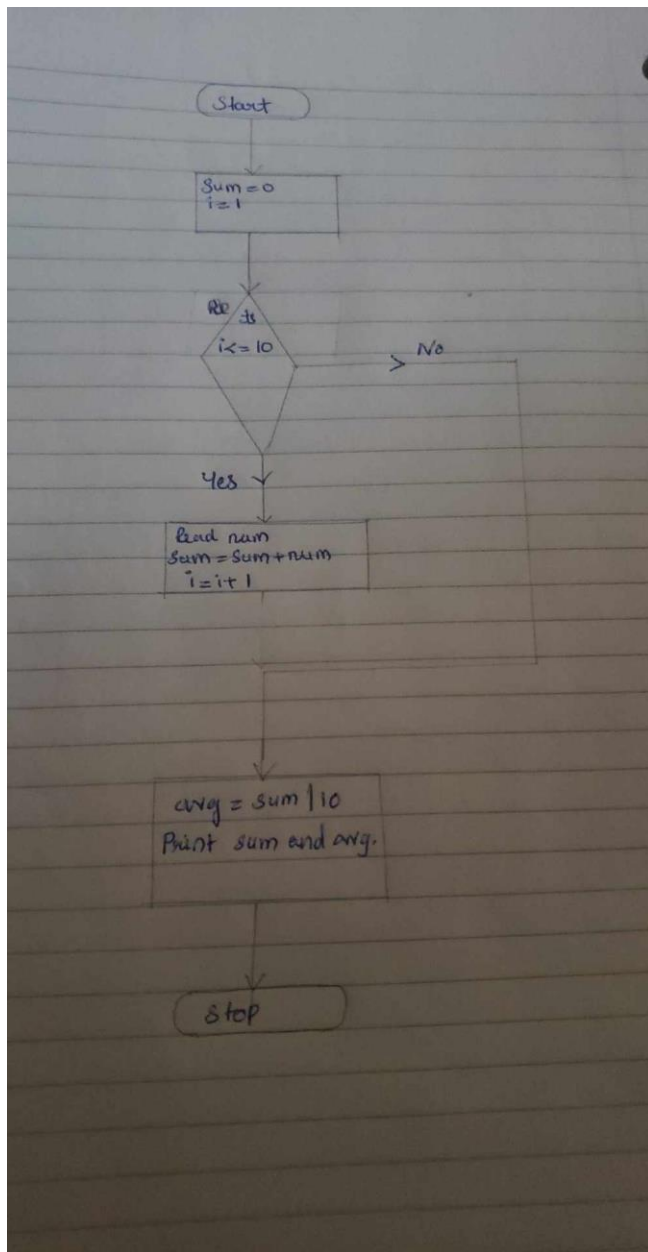 Start
Sum = 0
i = 1
Is
i <= 10
No
Yes
Read num
Sum = Sum + num
i = i + 1
avg = sum / 10
Print sum and avg.
Stop